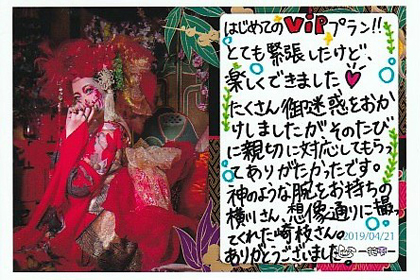 はじめてのVIPプラン!!
とても緊張したけど、
楽しくできました♥
たくさん御迷惑をおか
けしましたがそのたび
に親切に対応してもらっ
てありがたかったです。
神のような腕をお持ちの
横川さん、想像通りに撮っ
てくれた崎枝さん。
2019/04/21
ありがとうございました。